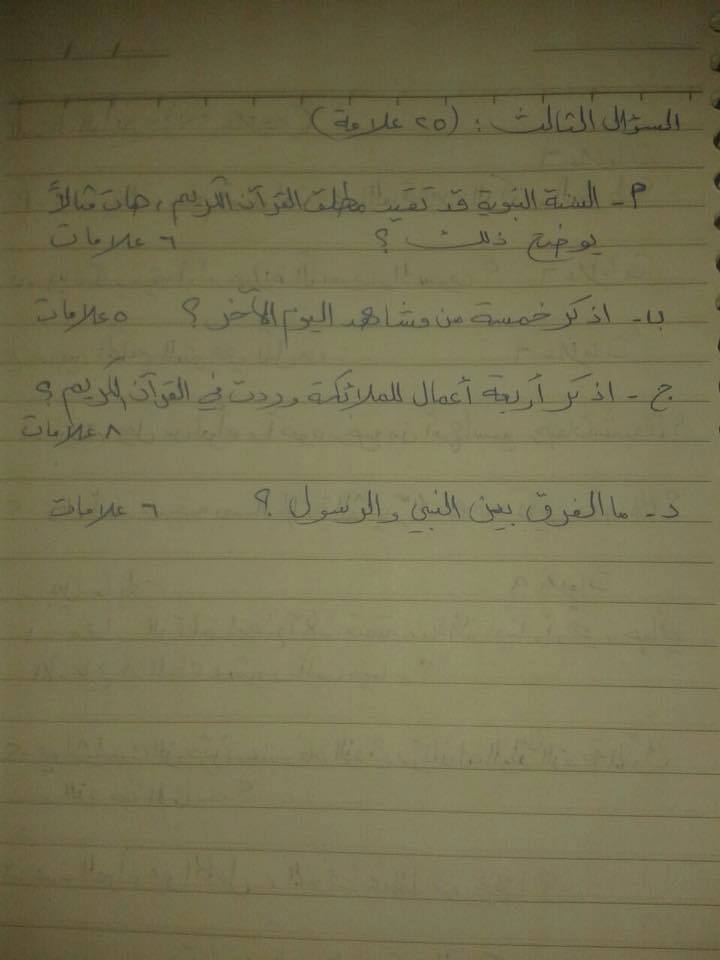 السؤال الثالث : (٢٥ علامة)
م - السنة النبوية قد تقيد مطلق القرآن الكريم ، هات مثالاً
يوضح ذلك ؟ ٦ علامات
ب - اذكر خمسة من مشاهد اليوم الآخر ؟ ٥ علامات
ج - اذكر أربعة أعمال للملائكة وردت في القرآن الكريم ؟
٨ علامات
د - ما الفرق بين النبي والرسول ؟ ٦ علامات